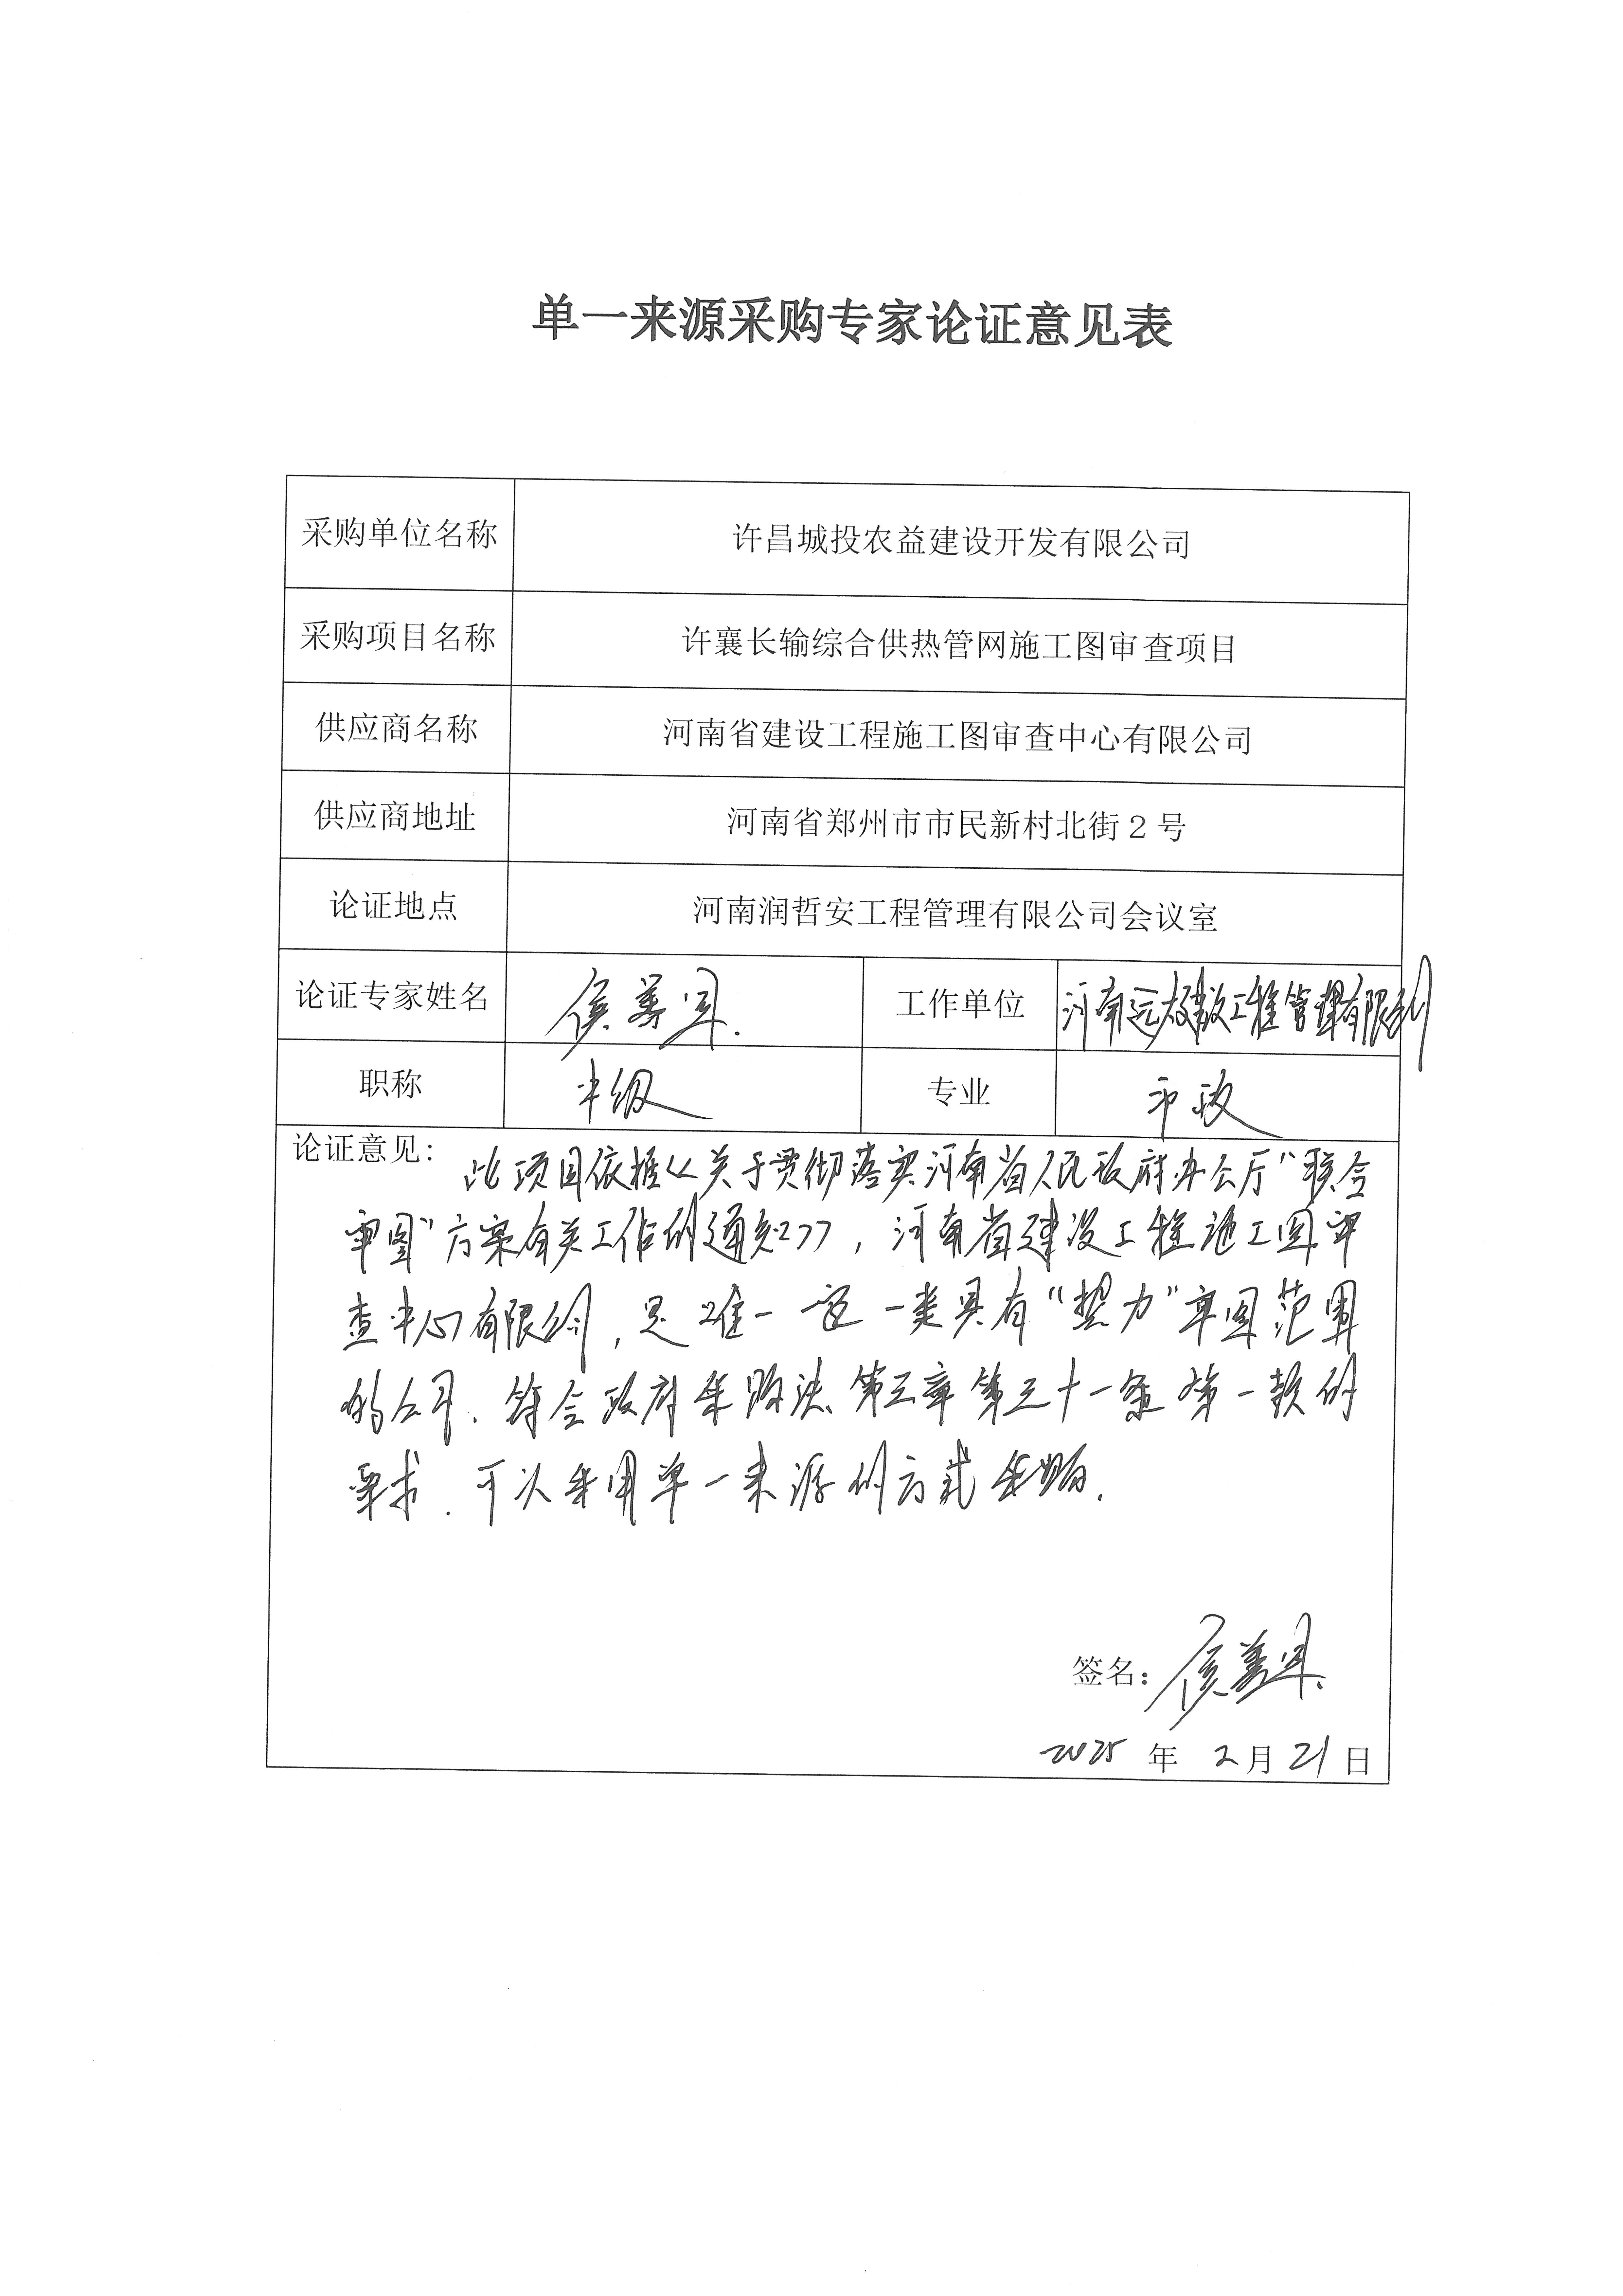 单一来源采购专家论证意见表
采购单位名称 许昌城投农益建设开发有限公司
采购项目名称 许襄长输综合供热管网施工图审查项目
供应商名称 河南省建设工程施工图审查中心有限公司
供应商地址 河南省郑州市市民新村北街2号
论证地点 河南润哲安工程管理有限公司会议室
论证专家姓名 侯 工作单位 河南远大建设工程管理有限公司
职称 中级 专业 市政
论证意见: 此项目依据《关于贯彻落实河南省人民政府办公厅“联合
审图”方案有关工作的通知》,河南省建设工程施工图审
查中心有限公司,是唯一一家一类具有“热力”审图范围
的公司.符合政府采购法第三章第三十一条第一款的
要求.可以采用单一来源的方式采购.
签名: 侯
2025年2月21日